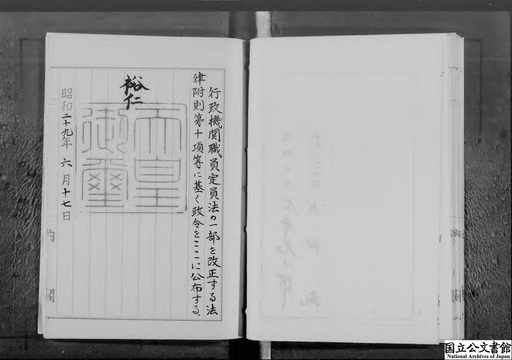 行政機関職員定員法の一部を改正する法
律附則第十項等に基く政令をここに公布する。
裕仁
天皇
御璽
昭和二十九年六月十七日
内閣
国立公文書館
National Archives of Japan